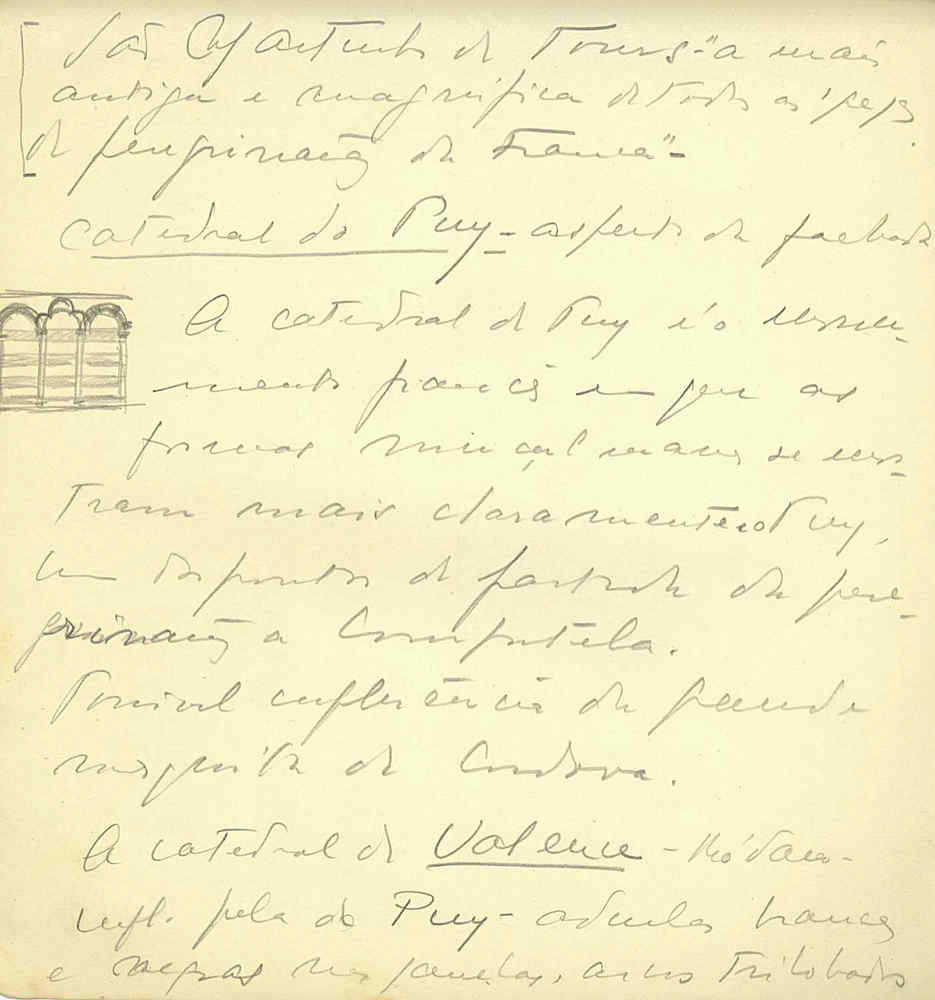 São Martinho de Tours - "a mais
antiga e magnifica de todas as
de peregrinação da França" -
Catedral do Puy - aspecto da fachada
A catedral de Puy é o monu-
mento francês em que as
formas muçulmanas se mos-
tram mais claramente. o Puy,
um dos pontos de partida da pere-
grinação a Compostela.
Possivel influência da grande
mesquita de Cordova.
A catedral de Valence - Ródano -
infl. pela de Puy - aduelas brancas
e negras nas janelas, arcos trilobados